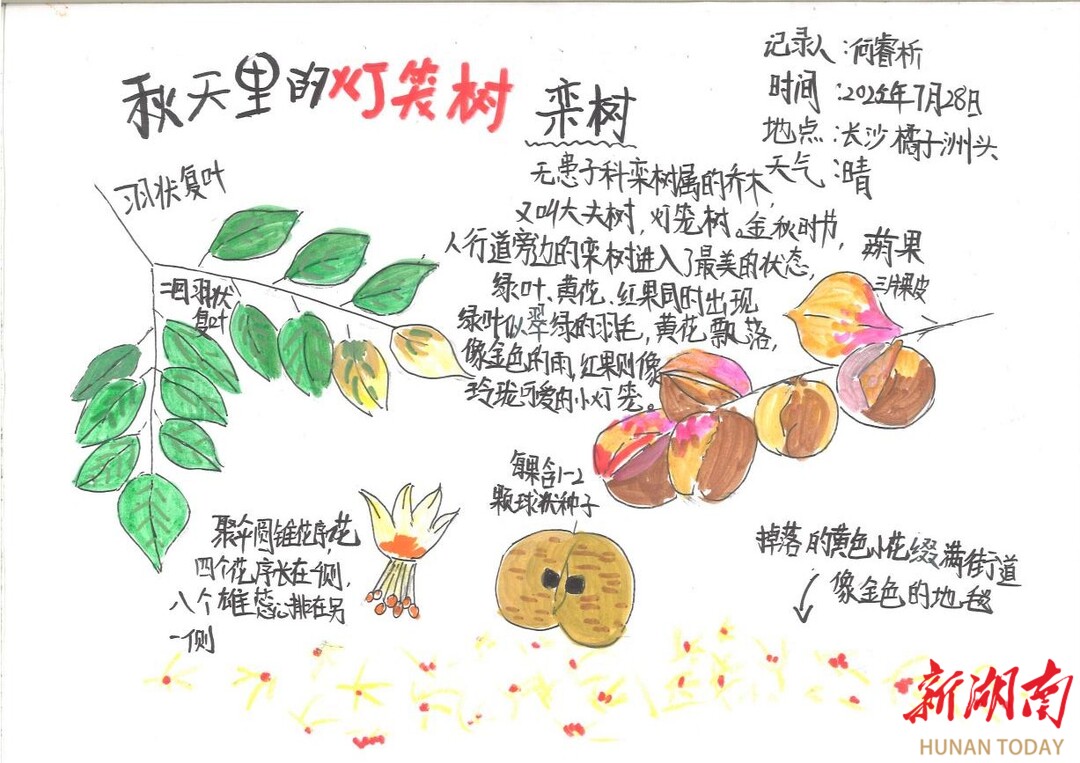 秋天里的灯笼树 栾树
记录人：何睿析
时间：2025年7月28日
地点：长沙橘子洲头
天气：晴
无患子科栾树属的乔木，
又叫大夫树，灯笼树。金秋时节，
人行道旁边的栾树进入了最美的状态，
绿叶、黄花、红果同时出现
绿叶似翠绿的羽毛，黄花飘落，
像金色的雨，红果则像
玲珑可爱的小灯笼。
羽状复叶
二回羽状
复叶
蒴果
三片果皮
每果含1-2
颗球状种子
聚伞圆锥花序，花
四个花序长在一侧，
八个雄蕊排在另
一侧
掉落的黄色小花缀满街道
像金色的地毯
新湖南
HUNAN TODAY